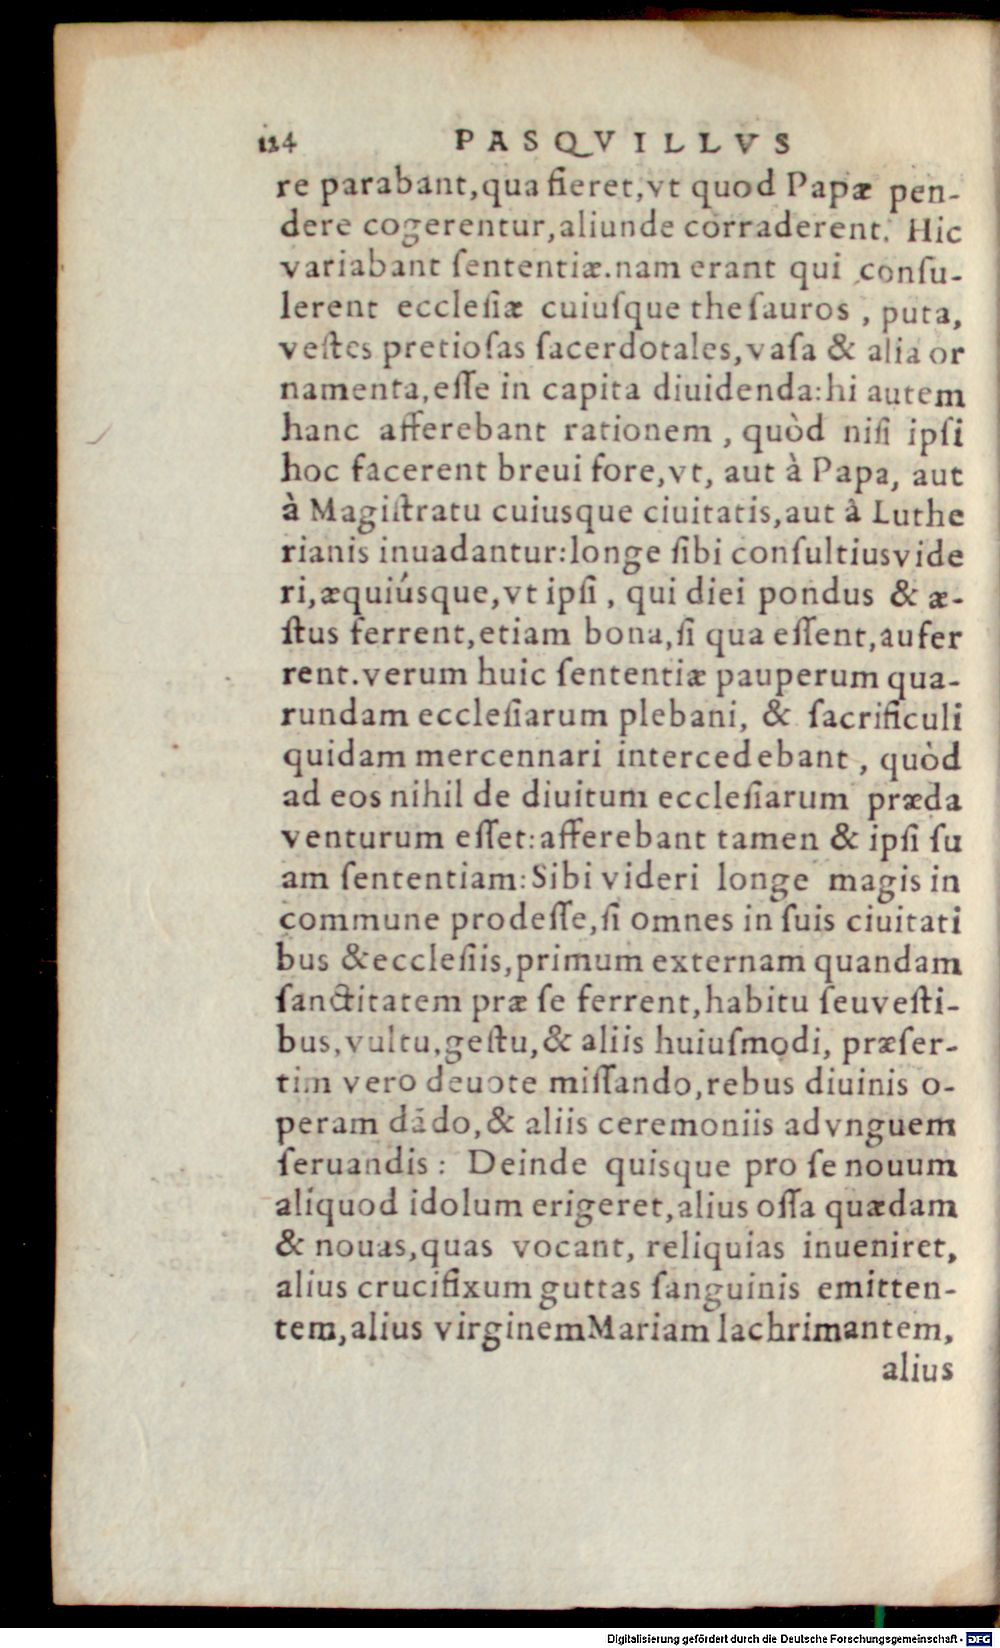 124 PASQVILLVS
re parabant,qua fieret,vt quod Papæ pen-
dere cogerentur,aliunde corraderent. Hic
variabant ſententiæ.nam erant qui conſu-
lerent eccleſiæ cuiuſque theſauros , puta,
veſtes pretioſas ſacerdotales,vaſa & alia or
namenta,eſſe in capita diuidenda:hi autem
hanc afferebant rationem , quòd niſi ipſi
hoc facerent breui fore,vt, aut à Papa, aut
à Magiſtratu cuiusque ciuitatis,aut à Luthe
rianis inuadantur:longe ſibi conſultiusvide
ri,æquiúsque,vt ipſi , qui diei pondus & æ-
ſtus ferrent,etiam bona,ſi qua eſſent,aufer
rent.verum huic ſententiæ pauperum qua-
rundam eccleſiarum plebani, & ſacrificuli
quidam mercennari intercedebant , quòd
ad eos nihil de diuitum eccleſiarum præda
venturum eſſet:afferebant tamen & ipſi ſu
am ſententiam:Sibi videri longe magis in
commune prodeſſe,ſi omnes in ſuis ciuitati
bus &eccleſiis,primum externam quandam
ſanctitatem præ ſe ferrent,habitu ſeuveſti-
bus,vultu,geſtu,& aliis huiuſmodi, præſer-
tim vero deuote miſſando,rebus diuinis o-
peram dādo,& aliis ceremoniis advnguem
ſeruandis : Deinde quisque pro ſe nouum
aliquod idolum erigeret,alius oſſa quædam
& nouas,quas vocant, reliquias inueniret,
alius crucifixum guttas ſanguinis emitten-
tem,alius virginemMariam lachrimantem,
alius
Digitalisierung gefördert durch die Deutsche Forschungsgemeinschaft - DFG